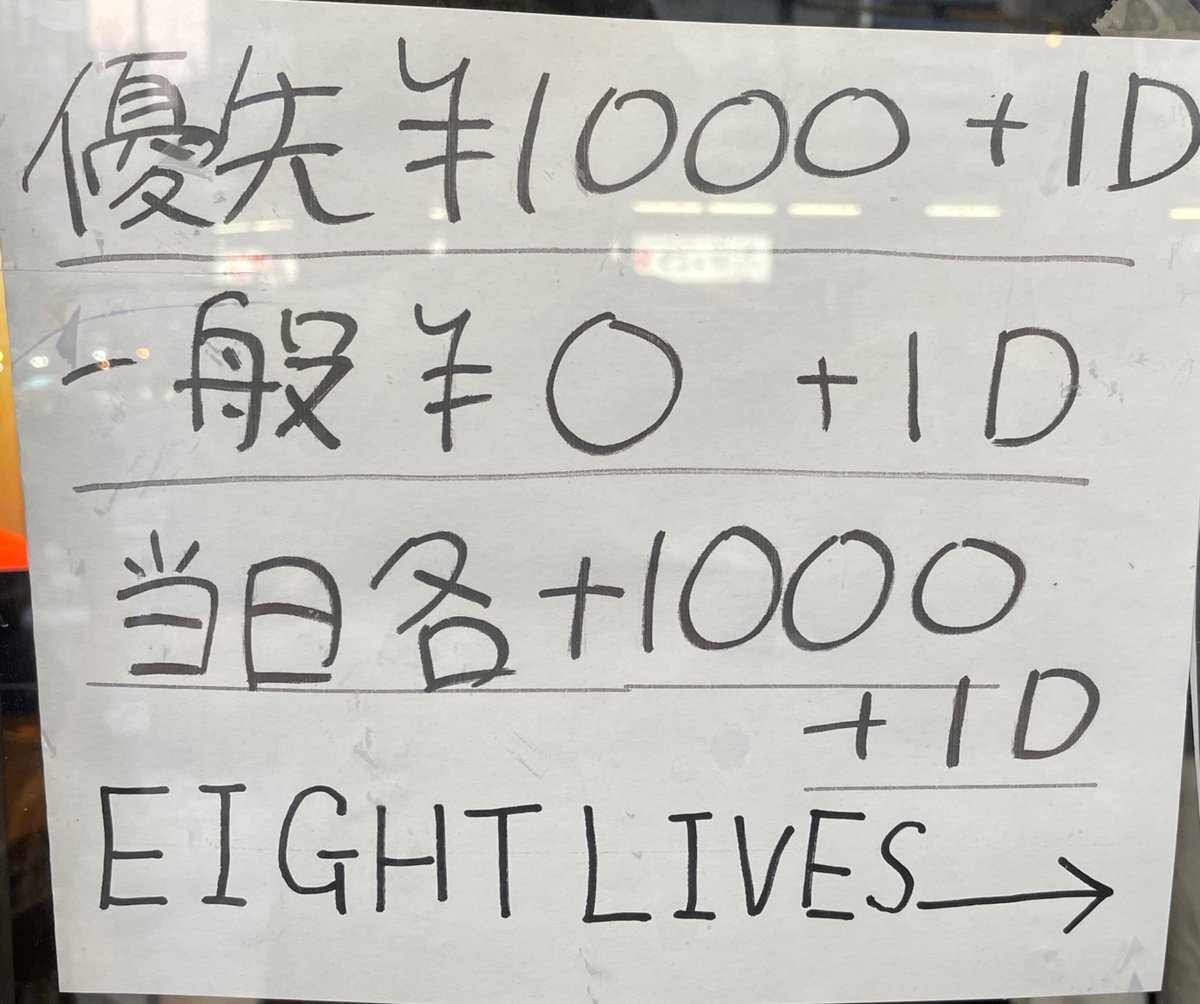 優先 ¥1000 +1D
一般 ¥0 +1D
当日各 +1000
+1D
EIGHT LIVES →